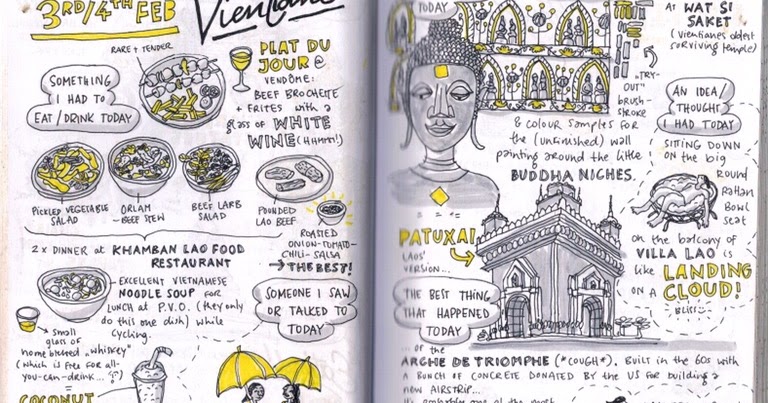 3RD/4TH FEB
Vientiane
RARE + TENDER
SOMETHING
I HAD TO
EAT/DRINK TODAY
PLAT DU
JOUR @
VENDÔME:
BEEF BROCHETTE
+ FRITES with a
glass of WHITE
WINE (HMMM!)
PICKLED VEGETABLE
SALAD
ORLAM
BEEF STEW
BEEF LARB
SALAD
POUNDED
LAO BEEF
ROASTED
ONION-TOMATO-
CHILI-SALSA
→ THE BEST!
2x DINNER at KHAMBAN LAO FOOD
RESTAURANT
EXCELLENT VIETNAMESE
NOODLE SOUP FOR
LUNCH at P.V.O. (they only
do this one dish) while
cycling.
small
glass of
home brewed "whiskey"
(which is free for all-
you-can-drink...
COCONUT
SOMEONE I SAW
OR TALKED TO
TODAY
TODAY
At WAT SI
SAKET
(Vientianes oldest
surviving temple)
"TRY-
OUT"
brush-
stroke
& colour samples for
the (unfinished) wall
painting around the little
BUDDHA NICHES.
AN IDEA/
THOUGHT
I HAD TODAY
SITTING DOWN
ON the big
round
Rattan
Bowl
seat
on the balcony of
VILLA LAO is
like LANDING
ON A CLOUD!
Bliss
PATUXAI
LAOS'
VERSION...
THE BEST THING
THAT HAPPENED
TODAY
... OF the
ARCHE DE TRIOMPHE (*COUGH*). BUILT in the 60s with
A BUNCH OF CONCRETE DONATED BY the US FOR building a
new AIRSTRIP...